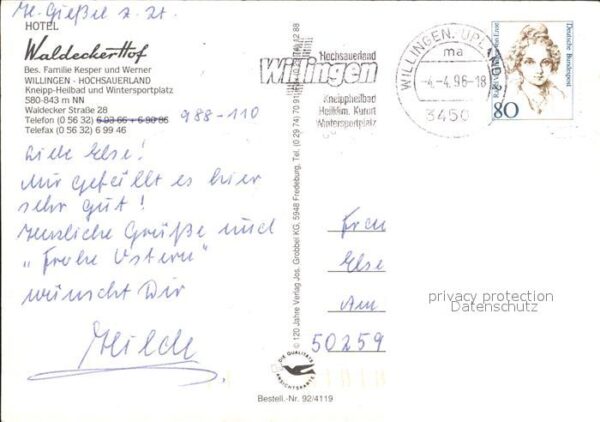 HOTEL
Waldecker Hof
Bes. Familie Kesper und Werner
WILLINGEN - HOCHSAUERLAND
Kneipp-Heilbad und Wintersportplatz
580-843 m NN
Waldecker Straße 28
Telefon (0 56 32) 6 93 66 + 6 90 86 988-110
Telefax (0 56 32) 6 99 46
Liebe Else!
Mir gefällt es hier
sehr gut!
Herzliche Grüße und
"Frohe Ostern"
wünscht Dir
Hilde
© 120 Jahre Verlag Jos. Grobbel KG, 5948 Fredeburg, Tel. (0 29 74) 70 91
12 88
DIE QUALITÄTS
ANSICHTSKARTE
Bestell.-Nr. 92/4119
Hochsauerland
Willingen
Kneippheilbad
Heilklim. Kurort
Wintersportplatz
WILLINGEN, UPLAND
ma
-4.-4.96-18
3450
Deutsche Bundespost
80
Frau
Else
Am
50259
privacy protection
Datenschutz